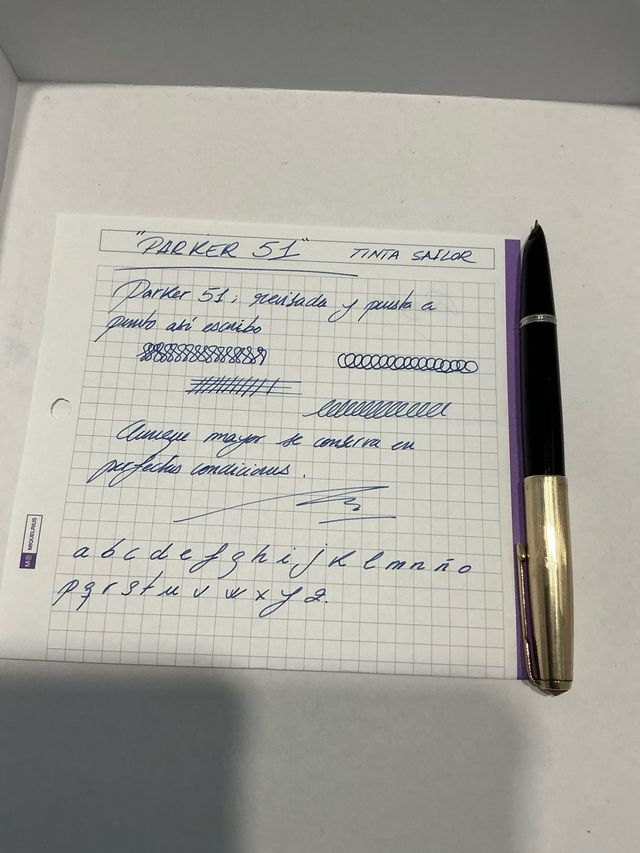 "PARKER 51" TINTA SAILOR
Parker 51, revisada y puesta a
punto así escribo
Aunque mayor se conserva en
perfectas condiciones.
MR MIQUELRIUS
a b c d e f g h i j k l m n ñ o
p q r s t u v w x y z.